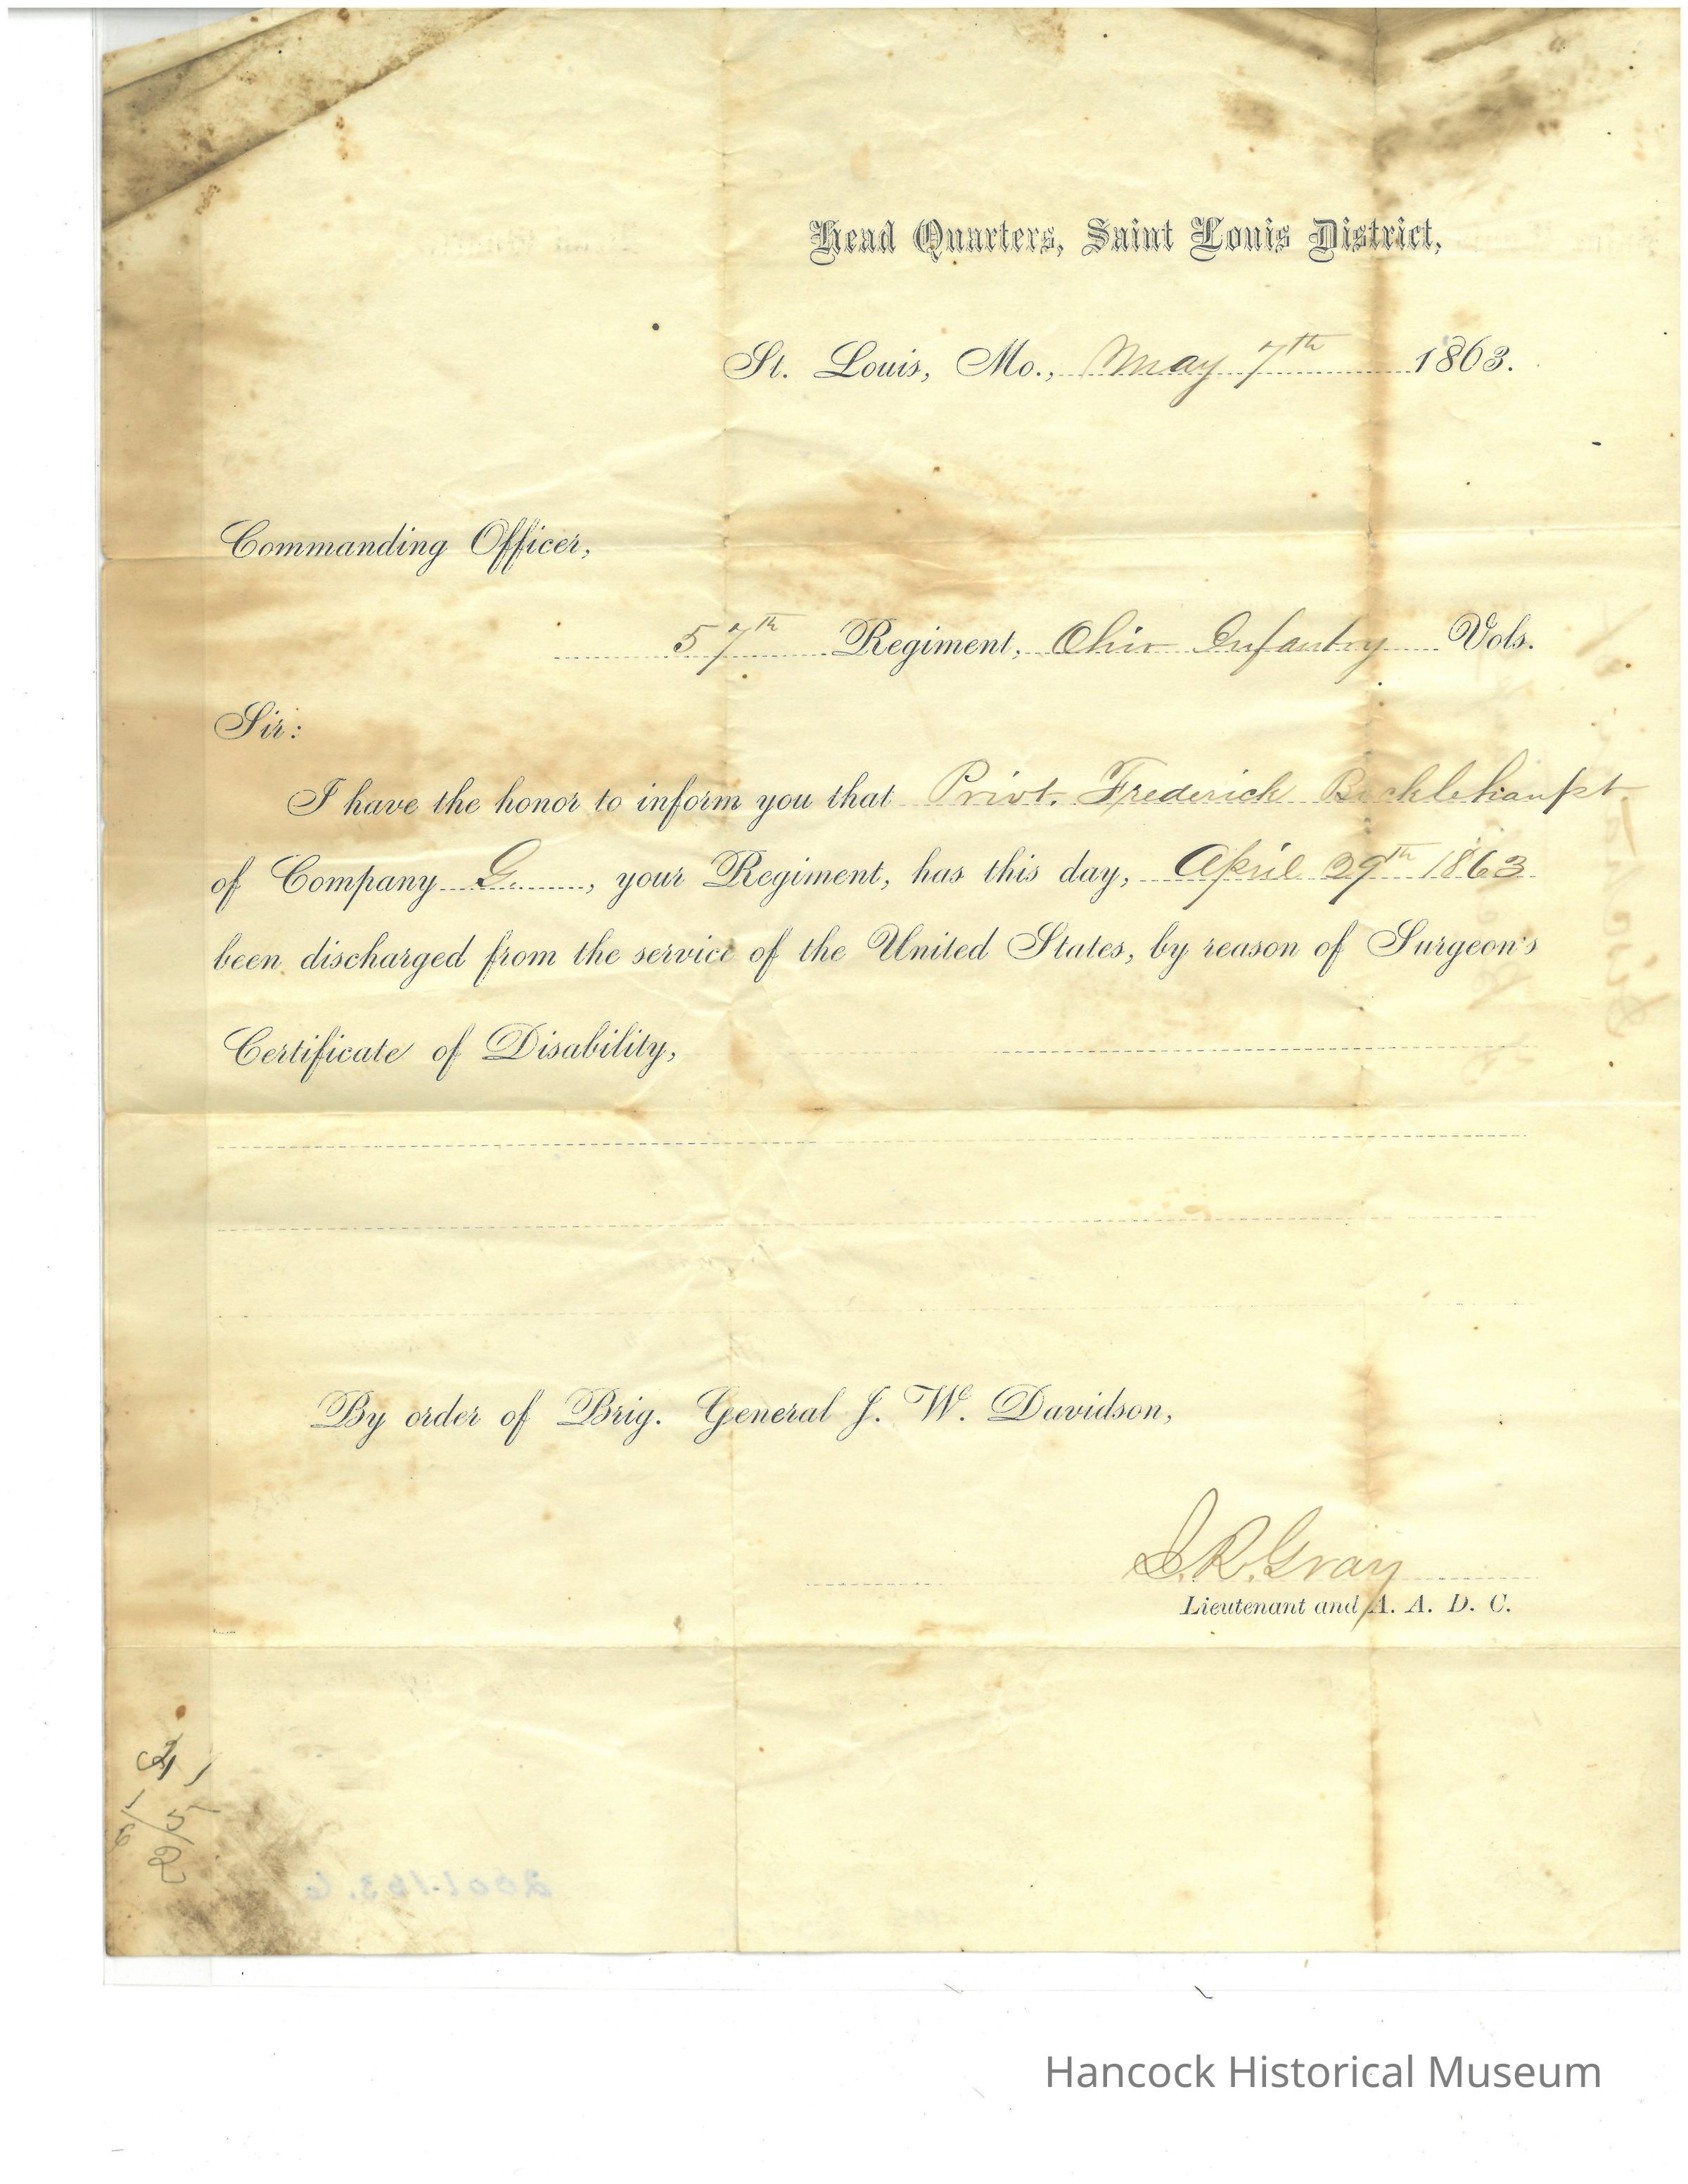 Head Quarters, Saint Louis District,
St. Louis, Mo., May 7th 1863.
Commanding Officer,
57th Regiment, Ohio Infantry Vols.
Sir:
I have the honor to inform you that Privt. Frederick
of Company G., your Regiment, has this day, April 29th 1863
been discharged from the service of the United States, by reason of Surgeon's
Certificate of Disability,
By order of Brig. General J. W. Davidson,
S. R. Gray
Lieutenant and A. A. D. C.
2001.163.6
Hancock Historical Museum